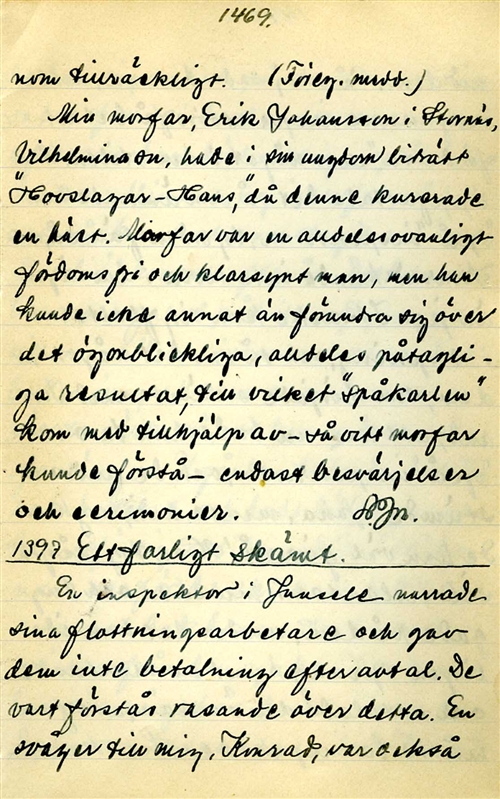 1469.
nom tillräckligt. (Föreg. medd.)
Min morfar, Erik Johansson i Stornäs,
Vilhelmina sn, hade i sin ungdom biträtt
"Hovslagar-Hans," då denne kurerade
en häst. Morfar var en alldeles ovanligt
fördomsfri och klarsynt man, men han
kunde icke annat än förundra sig över
det ögonblickliga, alldeles påtagli-
ga resultat, till vilket "spåkarlen"
kom med tillhjälp av - så vitt morfar
kunde förstå - endast besvärjelser
och ceremonier.
1397 Ett farligt skämt.
En inspektor i Junsele narrade
sina flottningsarbetare och gav
dem inte betalning efter avtal. De
vart förstås rasande över detta. En
svåger till mig, Konrad, var också